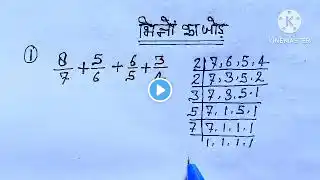 भिन्नों का जोड़
KINEMASTER
① 8/7 + 5/6 + 6/5 + 3/4
2 | 7, 6, 5, 4
2 | 7, 3, 5, 2
3 | 7, 3, 5, 1
5 | 7, 1, 5, 1
7 | 7, 1, 1, 1
1, 1, 1, 1